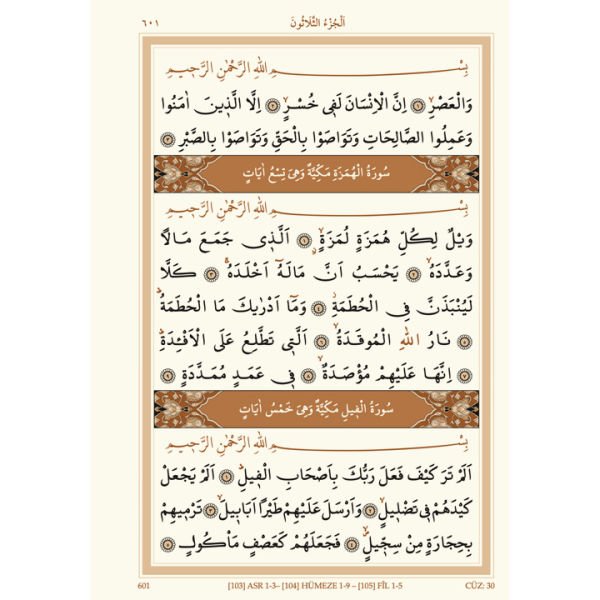 ٦٠١ اَلْجُزْءُ الثَّلَاثُونَ
بِسْمِ اللهِ الرَّحْمٰنِ الرَّحِيمِ
وَالْعَصْرِۙ ﴿١﴾ اِنَّ الْاِنْسَانَ لَفٖي خُسْرٍۙ ﴿٢﴾ اِلَّا الَّذٖينَ اٰمَنُوا
وَعَمِلُوا الصَّالِحَاتِ وَتَوَاصَوْا بِالْحَقِّ وَتَوَاصَوْا بِالصَّبْرِ ﴿٣﴾
سُورَةُ الْهُمَزَةِ مَكِّيَّةٌ وَهِيَ تِسْعُ اٰيَاتٍ
بِسْمِ اللهِ الرَّحْمٰنِ الرَّحِيمِ
وَيْلٌ لِكُلِّ هُمَزَةٍ لُمَزَةٍۙ ﴿١﴾ اَلَّذٖي جَمَعَ مَالاً
وَعَدَّدَهُۙ ﴿٢﴾ يَحْسَبُ اَنَّ مَالَهُٓ اَخْلَدَهُۚ ﴿٣﴾ كَلَّا
لَيُنْبَذَنَّ فِي الْحُطَمَةِۘ ﴿٤﴾ وَمَٓا اَدْرٰيكَ مَا الْحُطَمَةُۜ
﴿٥﴾ نَارُ اللهِ الْمُوقَدَةُۙ ﴿٦﴾ اَلَّتٖي تَطَّلِعُ عَلَى الْاَفْـِٔدَةِۜ
﴿٧﴾ اِنَّهَا عَلَيْهِمْ مُؤْصَدَةٌۙ ﴿٨﴾ فٖي عَمَدٍ مُمَدَّدَةٍ ﴿٩﴾
سُورَةُ الْفٖيلِ مَكِّيَّةٌ وَهِيَ خَمْسُ اٰيَاتٍ
بِسْمِ اللهِ الرَّحْمٰنِ الرَّحِيمِ
اَلَمْ تَرَ كَيْفَ فَعَلَ رَبُّكَ بِاَصْحَابِ الْفٖيلِۜ ﴿١﴾ اَلَمْ يَجْعَلْ
كَيْدَهُمْ فٖي تَضْلٖيلٍۙ ﴿٢﴾ وَاَرْسَلَ عَلَيْهِمْ طَيْراً اَبَابٖيلَۙ ﴿٣﴾ تَرْمٖيهِمْ
بِحِجَارَةٍ مِنْ سِجّٖيلٍۙ ﴿٤﴾ فَجَعَلَهُمْ كَعَصْفٍ مَأْكُولٍ ﴿٥﴾
601 [103] ASR 1-3– [104] HÜMEZE 1-9 – [105] FÎL 1-5 CÜZ: 30